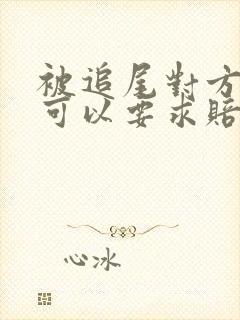 被追尾對方
可以要求賠
心冰